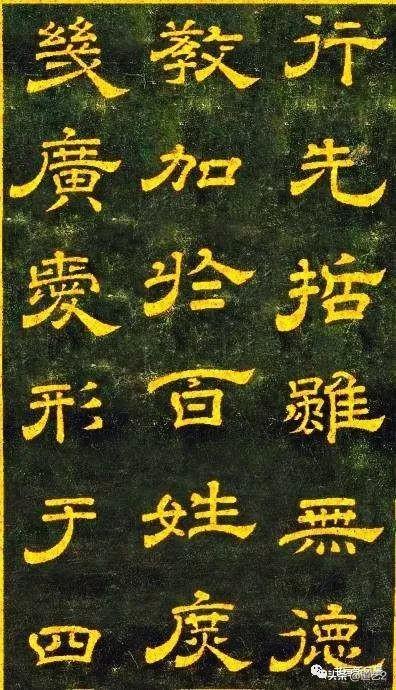 行先哲雖無德
教加於百姓庶
幾廣愛形于四